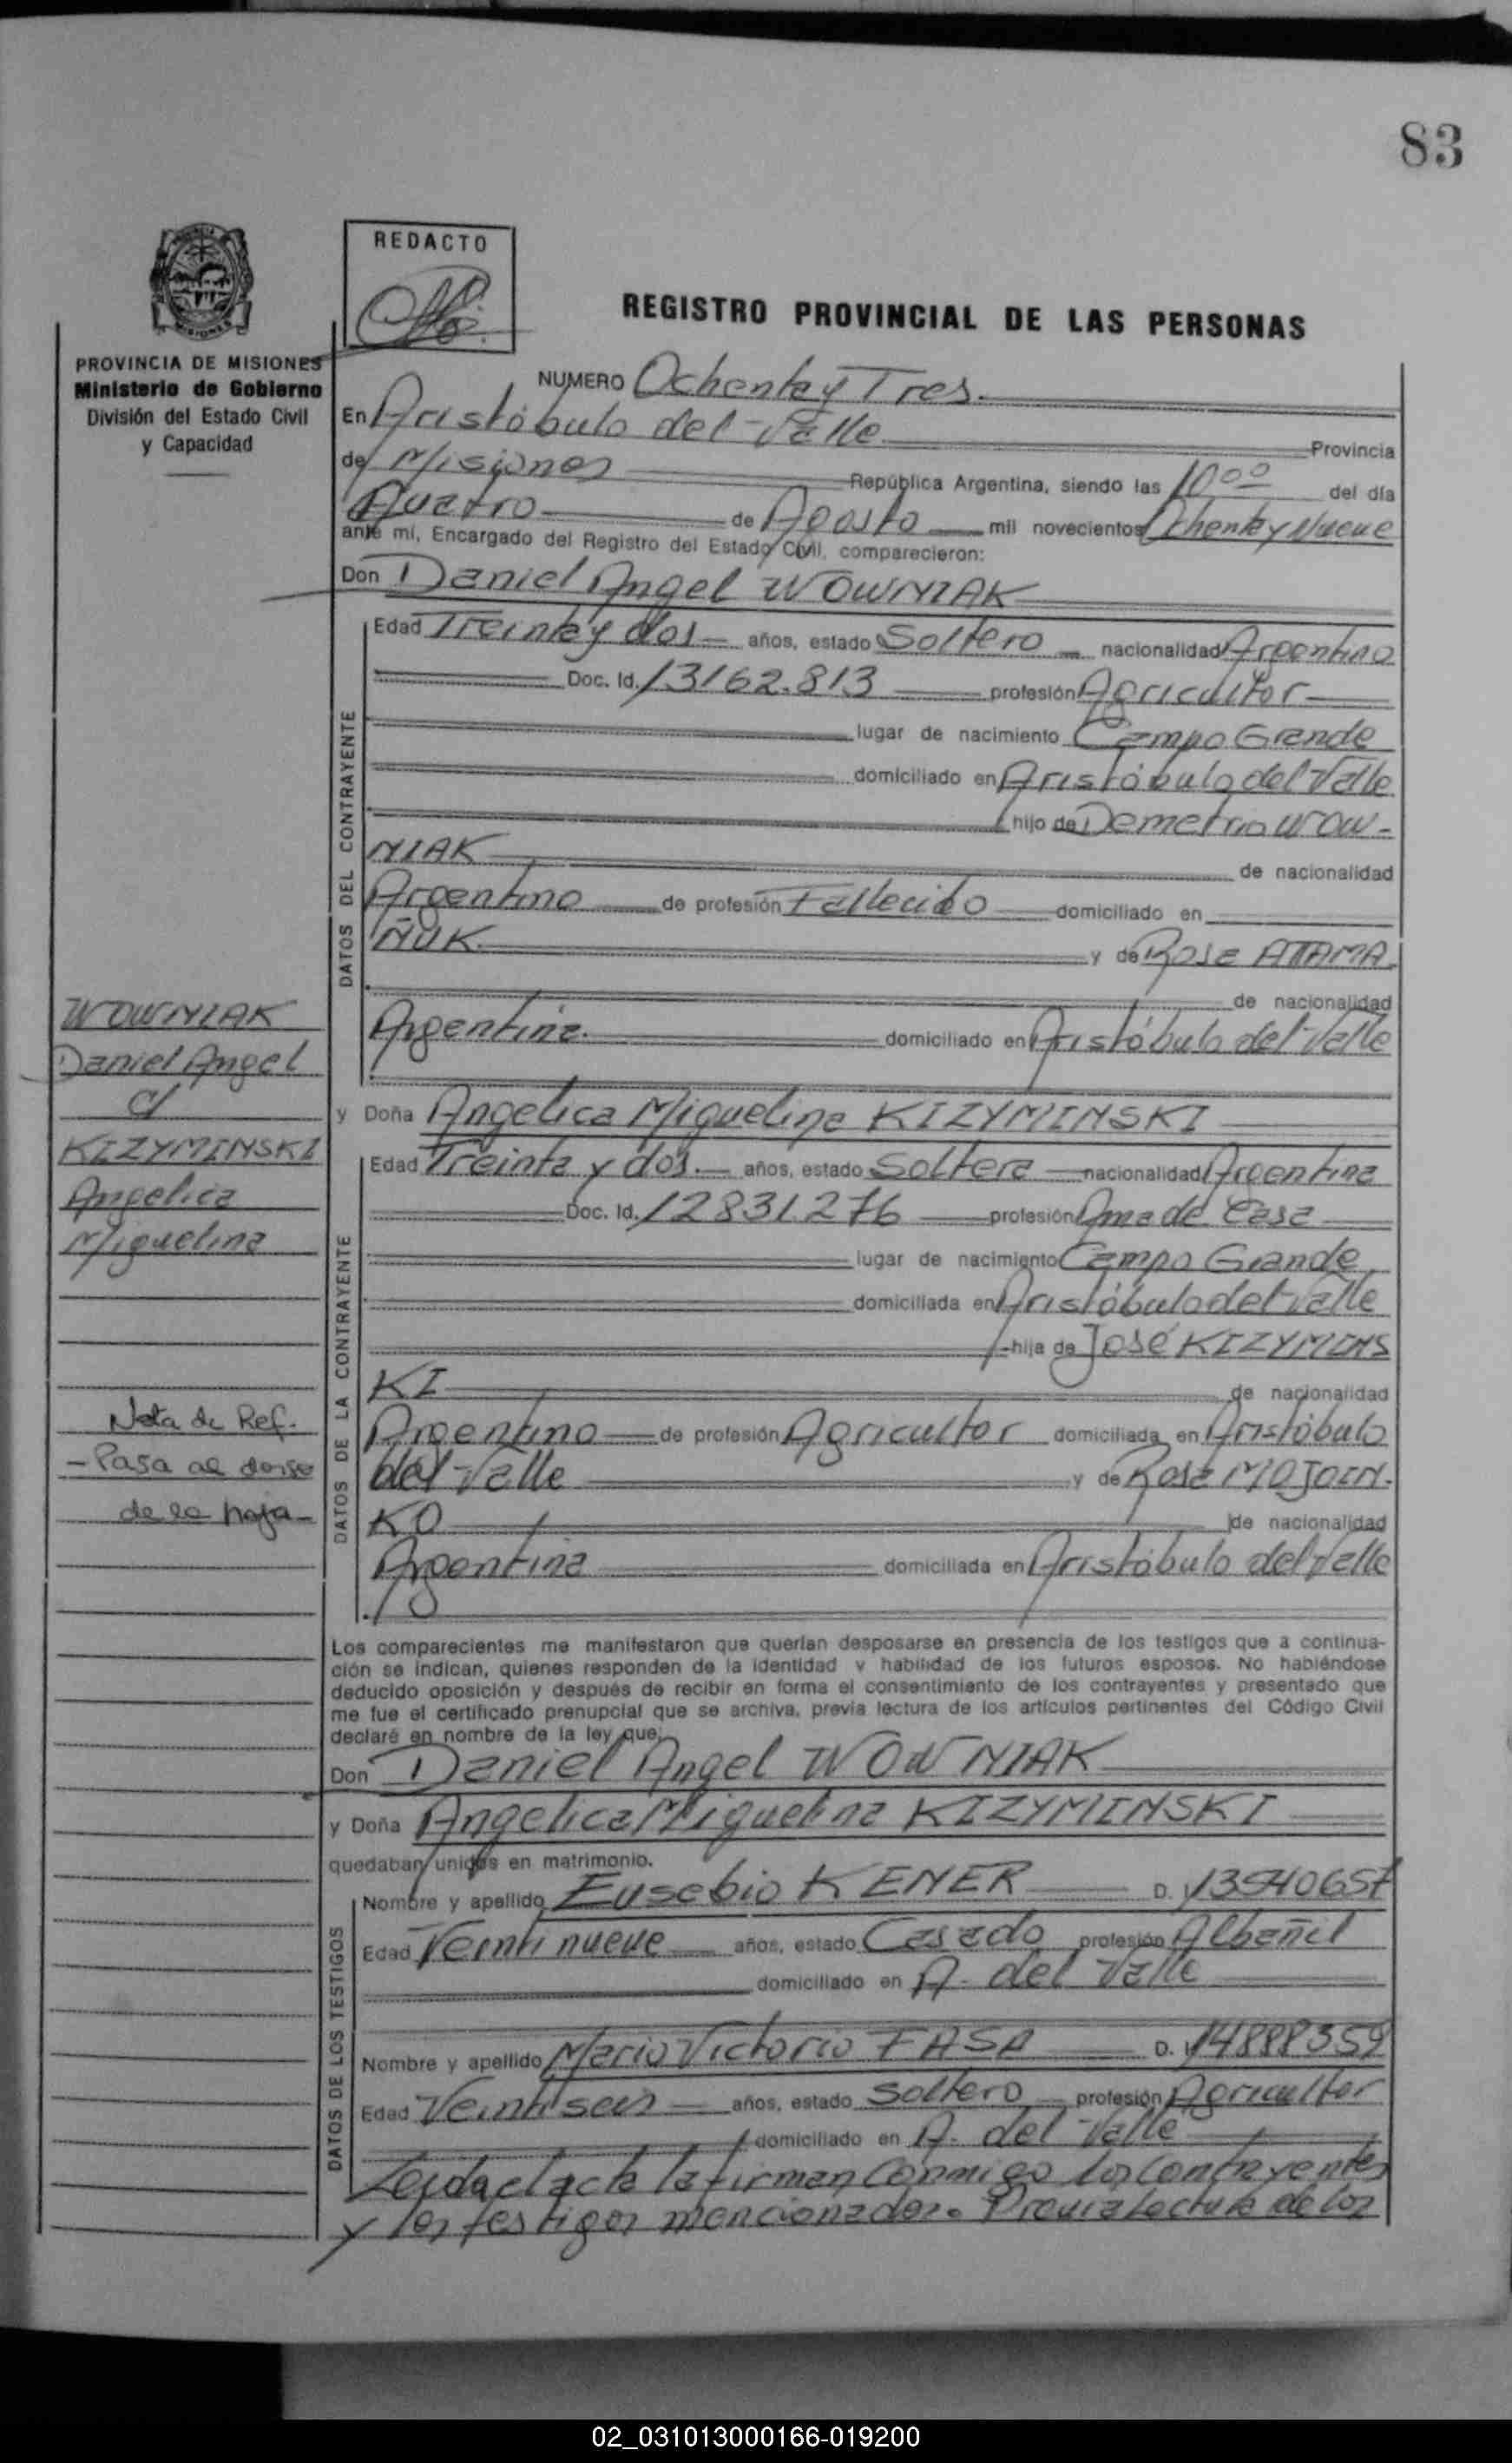 83
REDACTO
REGISTRO PROVINCIAL DE LAS PERSONAS
PROVINCIA DE MISIONES
Ministerio de Gobierno
División del Estado Civil
y Capacidad
NUMERO Ochenta y Tres.
En Aristóbulo del Valle Provincia
de Misiones República Argentina, siendo las 10°° del día
Cuatro de Agosto mil novecientos Ochenta y Nueve
ante mí, Encargado del Registro del Estado Civil, comparecieron:
Don Daniel Angel WOWNIAK
DATOS DEL CONTRAYENTE
Edad Treinta y dos años, estado Soltero nacionalidad Argentino
Doc. Id. 13162.813 profesión Agricultor
lugar de nacimiento Campo Grande
domiciliado en Aristóbulo del Valle
hijo de Demetrio WOW-
NIAK de nacionalidad
Argentino de profesión Fallecido domiciliado en
y de Rosa ATAMA
ÑUK. de nacionalidad
Argentina. domiciliado en Aristóbulo del Valle
WOWNIAK
Daniel Angel
c/
KIZYMINSKI
Angelica
Miguelina
y Doña Angelica Miguelina KIZYMINSKI
DATOS DE LA CONTRAYENTE
Edad Treinta y dos. años, estado Soltera nacionalidad Argentina
Doc. Id. 12831.276 profesión Ama de Casa
lugar de nacimiento Campo Grande
domiciliada en Aristóbulo del Valle
hija de José KIZYMINS
KI de nacionalidad
Argentino de profesión Agricultor domiciliada en Aristóbulo
del Valle y de Rosa MOJOIN-
KO de nacionalidad
Argentina domiciliada en Aristóbulo del Valle
Nota de Ref.
- Pasa al dorso
de la hoja -
Los comparecientes me manifestaron que querían desposarse en presencia de los testigos que a continua-
ción se indican, quienes responden de la identidad y habilidad de los futuros esposos. No habiéndose
deducido oposición y después de recibir en forma el consentimiento de los contrayentes y presentado que
me fue el certificado prenupcial que se archiva, previa lectura de los artículos pertinentes del Código Civil
declaré en nombre de la ley que:
Don Daniel Angel WOWNIAK
y Doña Angelica Miguelina KIZYMINSKI
quedaban unidos en matrimonio.
DATOS DE LOS TESTIGOS
Nombre y apellido Eusebio KENER D. I. 13540657
Edad Veintinueve años, estado Casado profesión Albañil
domiciliado en A. del Valle
Nombre y apellido Mario Victorio FASA D. I. 14888359
Edad Veintiseis años, estado Soltero profesión Agricultor
domiciliado en A. del Valle
Leida el acta la firman Conmigo los Contrayentes
y los testigos mencionados. Previa Lectura de los
02_031013000166-019200